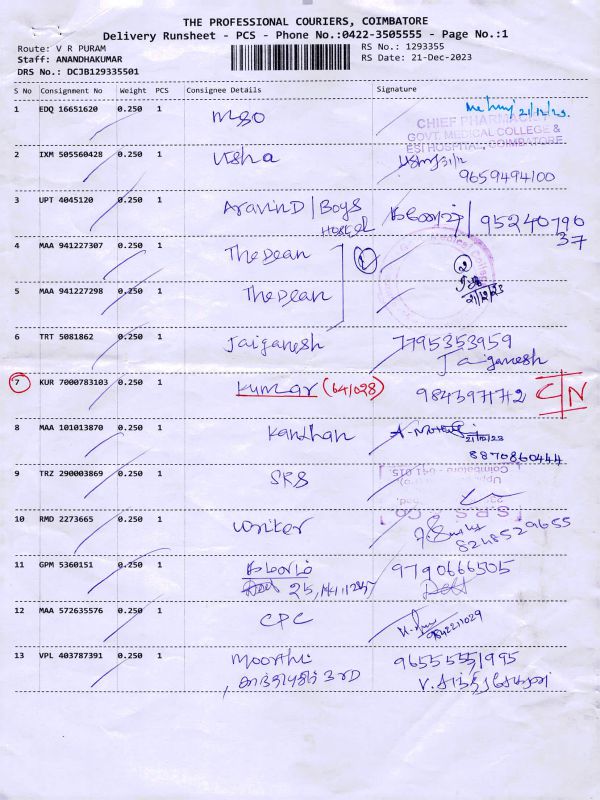 THE PROFESSIONAL COURIERS, COIMBATORE
Delivery Runsheet - PCS - Phone No.:0422-3505555 - Page No.:1
Route: V R PURAM
RS No.: 1293355
Staff: ANANDHAKUMAR
RS Date: 21-Dec-2023
DRS No.: DCJB129335501
S No Consignment No Weight PCS Consignee Details Signature
1 EDQ 16651620 0.250 1 MSO 21/12/23
CHIEF PHARMACIST
GOVT. MEDICAL COLLEGE &
ESI HOSPITAL, COIMBATORE
2 IXM 505560428 0.250 1 Usha 21/12
9659494100
3 UPT 4045120 0.250 1 Aravind | Boys Hostel 95240790
37
4 MAA 941227307 0.250 1 The Dean 1 2
5 MAA 941227298 0.250 1 The Dean 21/12/23
6 TRT 5081862 0.250 1 Jaiganesh 7795353959
Jaiganesh
7 KUR 7000783103 0.250 1 Kumar (64/028) 9843971712 C N
8 MAA 101013870 0.250 1 Kandhan 21/12/23
8870860444
9 TRZ 290003869 0.250 1 SRS
Coimbatore - 641 015
S.R.S. & CO
10 RMD 2273665 0.250 1 Writer 8248529655
11 GPM 5360151 0.250 1 9790666505
12 MAA 572635576 0.250 1 CPC 9842211029
13 VPL 403787391 0.250 1 Moorthi 96555551995
3RD